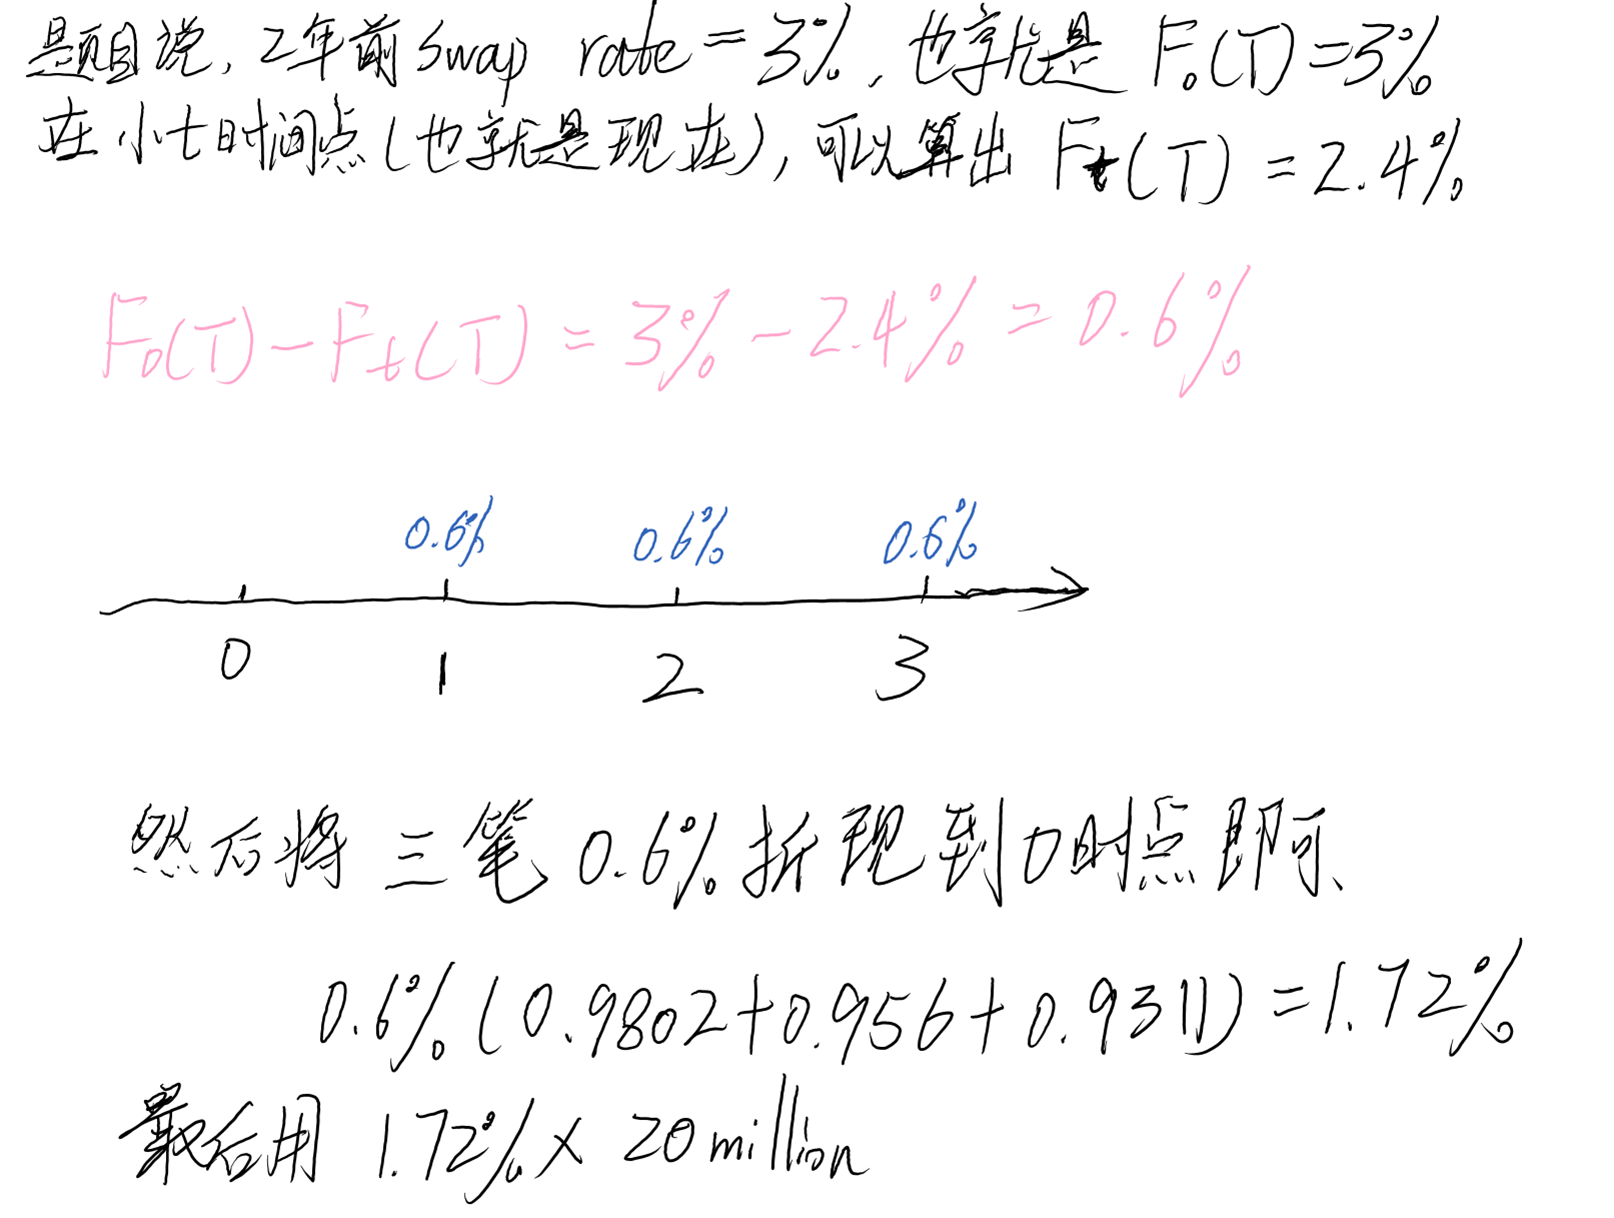 题目说, 2年前 swap rate = 3%, 也就是 F₀(T) = 3%
在小t时间点(也就是现在), 可以算出 Ft(T) = 2.4%
F₀(T) - Ft(T) = 3% - 2.4% = 0.6%
0.6% 0.6% 0.6%
0 1 2 3
然后将三笔 0.6% 折现到0时点即可、
0.6% (0.9802+0.956+0.9311) = 1.72%
最后用 1.72% × 20 million